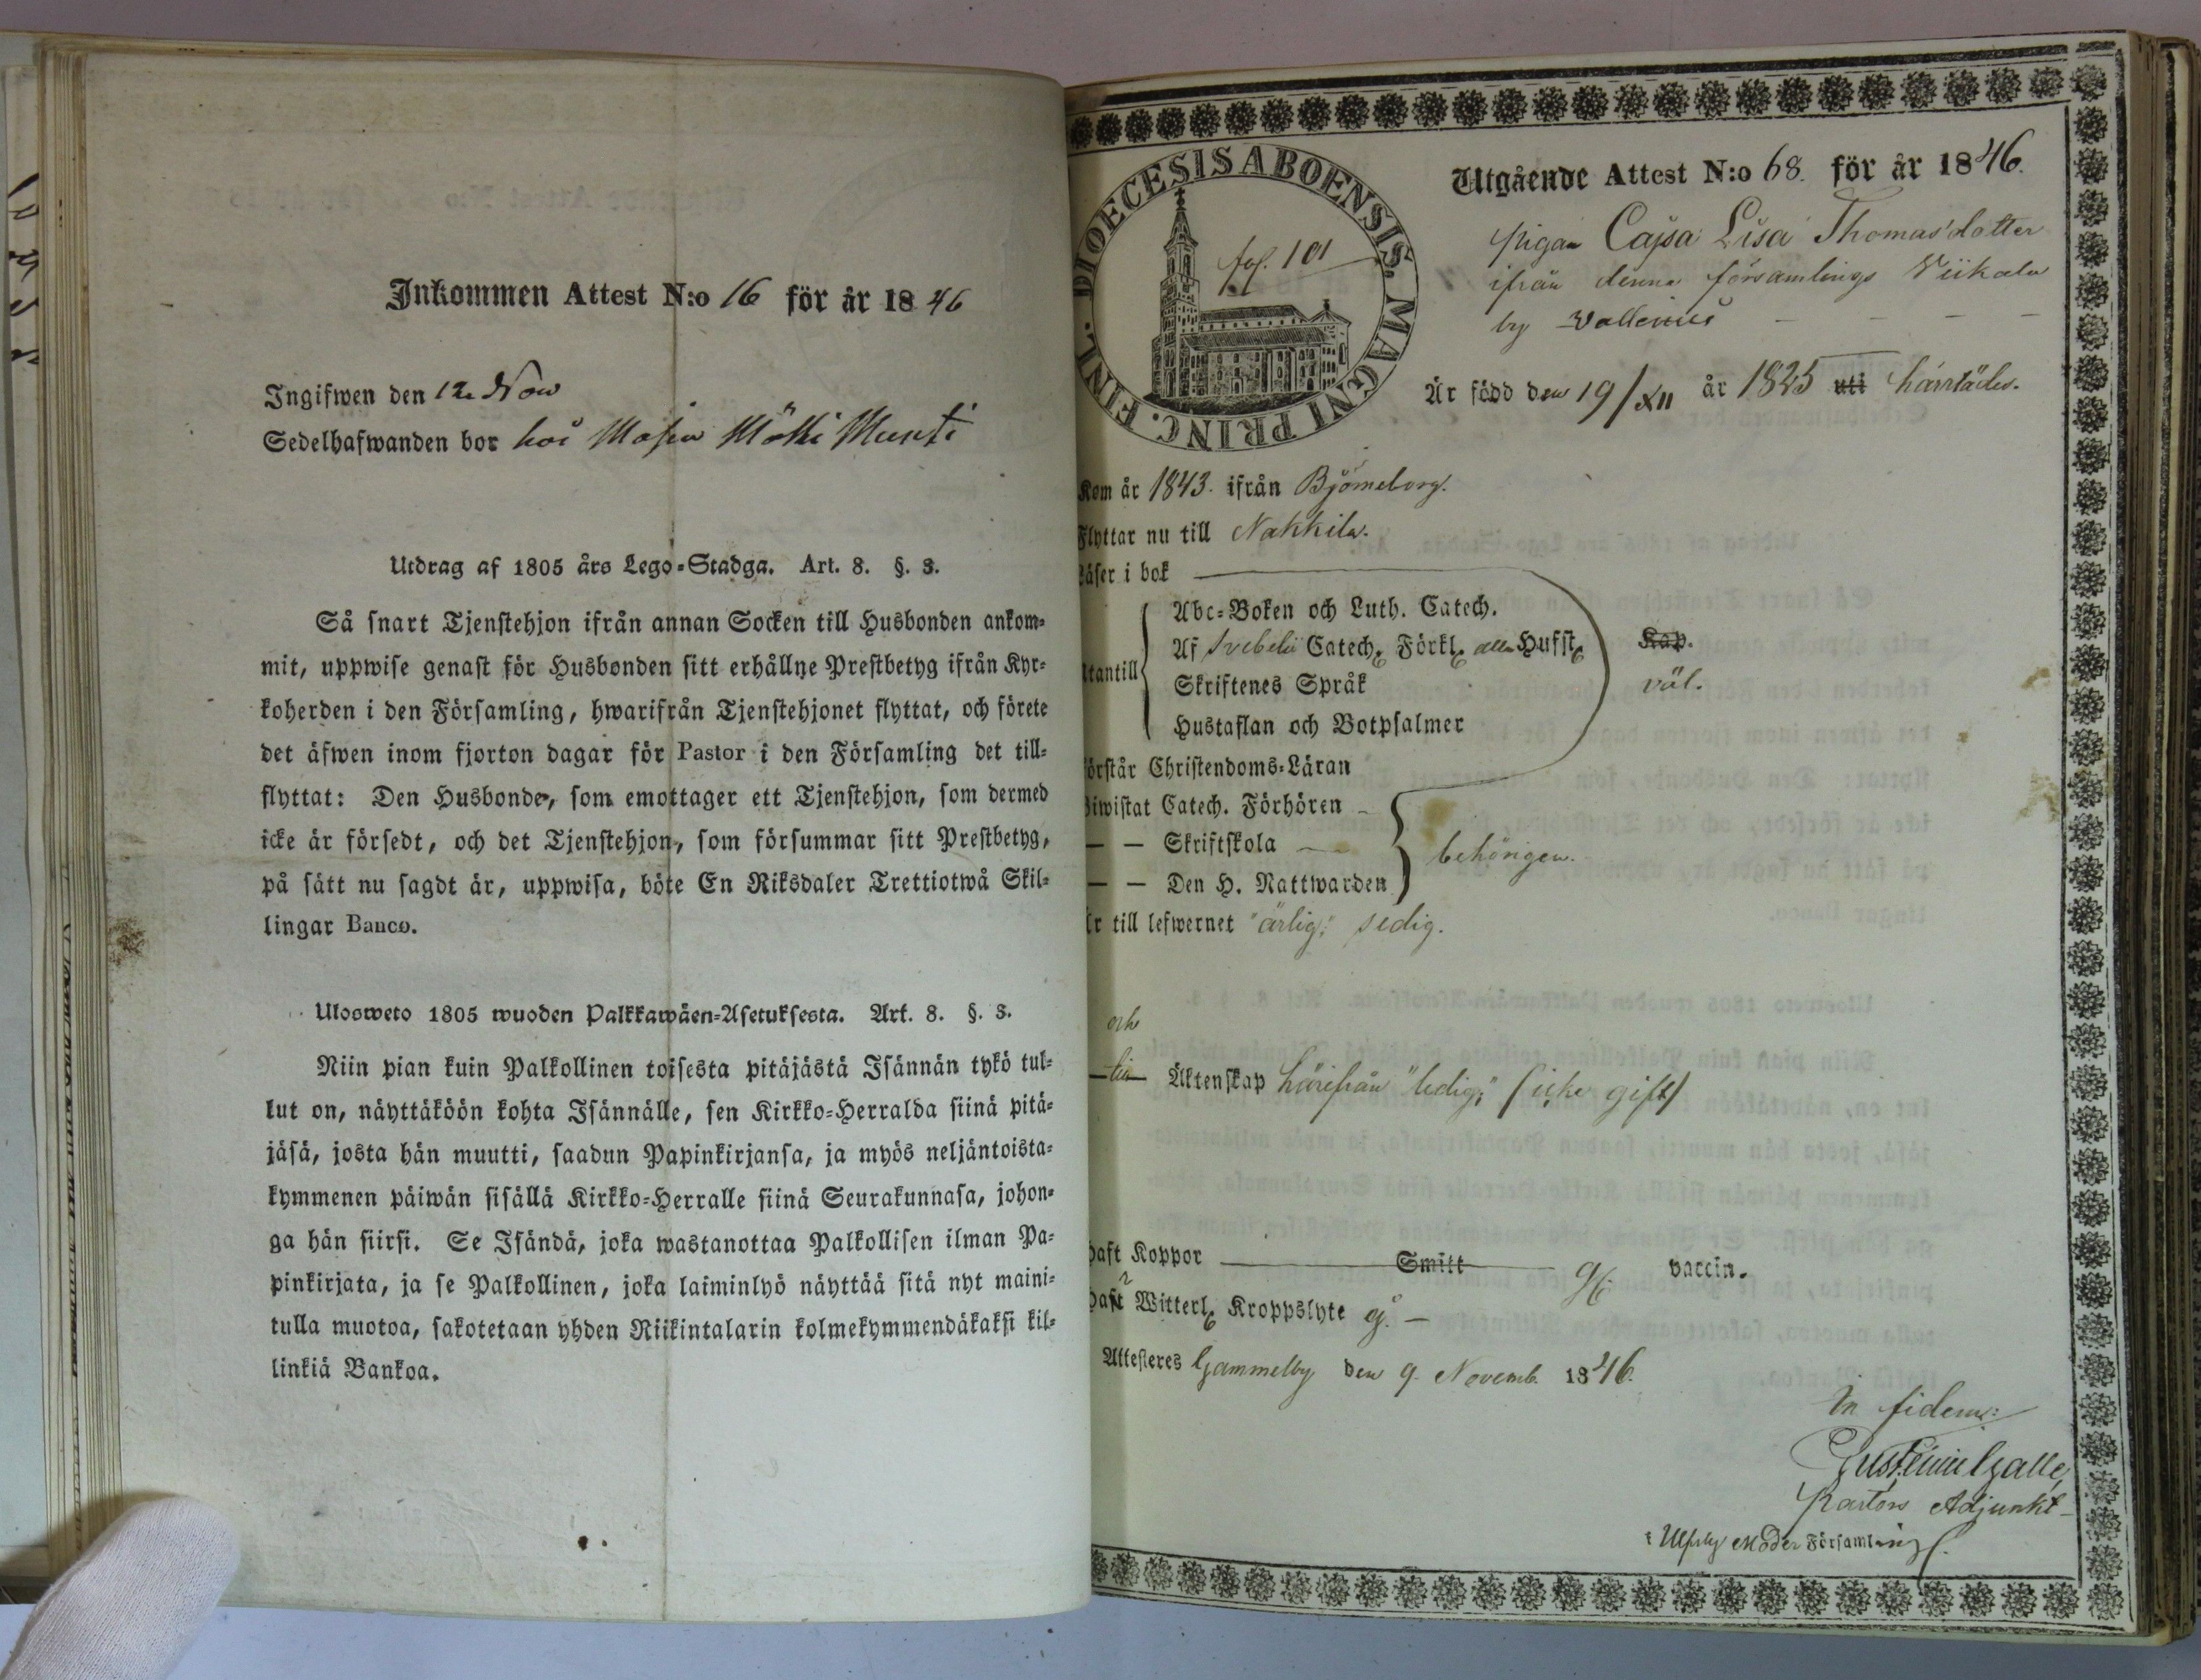 Inkommen Attest N:o 16 för år 1846
Ingifwen den 12 Nov
Sedelhafwanden bor hos Masia Mökki Munti
Utdrag af 1805 års Lego-Stadga. Art. 8. §. 3.
Så snart Tjenstehjon ifrån annan Socken till Husbonden ankom-
mit, uppwise genast för Husbonden sitt erhållne Prestbetyg ifrån Kyr-
koherden i den Församling, hwarifrån Tjenstehjonet flyttat, och förete
det äfwen inom fjorton dagar för Pastor i den Församling det till-
flyttat: Den Husbonde, som emottager ett Tjenstehjon, som dermed
icke är försedt, och det Tjenstehjon, som försummar sitt Prestbetyg,
på sätt nu sagdt är, uppwisa, böte En Riksdaler Trettiotwå Skil-
lingar Banco.
Ulosweto 1805 wuoden Palkkawäen-Asetuksesta. Art. 8. §. 3.
Niin pian kuin Palkollinen toisesta pitäjästä Isännän tykö tul-
lut on, näyttäköön kohta Isännälle, sen Kirkko-Herralda siinä pitä-
jäsä, josta hän muutti, saadun Papinkirjansa, ja myös neljäntoista-
kymmenen päiwän sisällä Kirkko-Herralle siinä Seurakunnasa, johon-
ga hän siirsi. Se Isändä, joka wastanottaa Palkollisen ilman Pa-
pinkirjata, ja se Palkollinen, joka laiminlyö näyttää sitä nyt maini-
tulla muotoa, sakotetaan yhden Riikintalarin kolmekymmendäkaksi kil-
linkiä Bankoa.
DIOECESIS ABOENSIS. MAGNI PRINC. FINL.
fol. 101
Utgående Attest N:o 68. för år 1846.
pigan Cajsa Lisa Thomasdotter
ifrån denna församlings Viikala
by Vallenius
Är född den 19/XII år 1825 uti härstädes.
Kom år 1843. ifrån Björneborg.
Flyttar nu till Nakkila.
Läser i bok
Utantill
Abc-Boken och Luth. Catech.
Af Svebelii Catech. Förkl. Hufst
Skriftenes Språk
Hustaflan och Botpsalmer
Kap.
väl.
Förstår Christendoms-Läran
Biwistat Catech. Förhören
— — Skriftskola
— — Den H. Nattwarden
behörigen.
Är till lefwernet "ärlig", sedig.
och
till Äktenskap härifrån "ledig", (icke gift)
Haft Koppor Smitt vaccin.
Haft Witterl. Kroppslyte ej. —
Attesteres Gammelby den 9. Novemb. 1846.
In fidem:
Gust. Em. Galle,
Pastors Adjunkt
i Ulfsby Moder Församling.